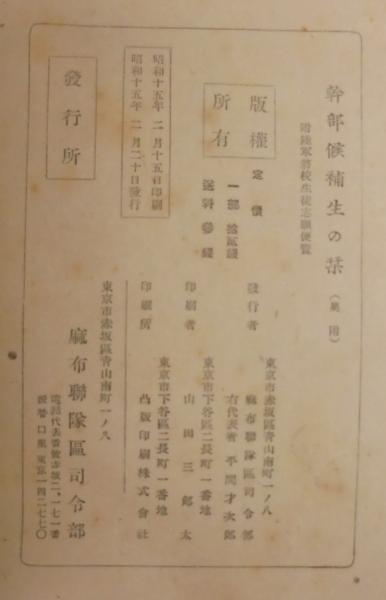 幹部候補生の栞(奥附)
附陸軍諸校生徒志願便覽
版權
所有
定價
一部 拾五錢
送料 參錢
昭和十五年 二月十五日印刷
昭和十五年 二月二十日發行
發行所
東京市赤坂區青山南町一ノ八
發行者 麻布聯隊區司令部
右代表者 平間才次郎
東京市下谷區二長町一番地
印刷者 山田三郎太
東京市下谷區二長町一番地
印刷所 凸版印刷株式會社
東京市赤坂區青山南町一ノ八
麻布聯隊區司令部
電話代表番號赤坂二、一七一番
振替口座東京一四二七七〇